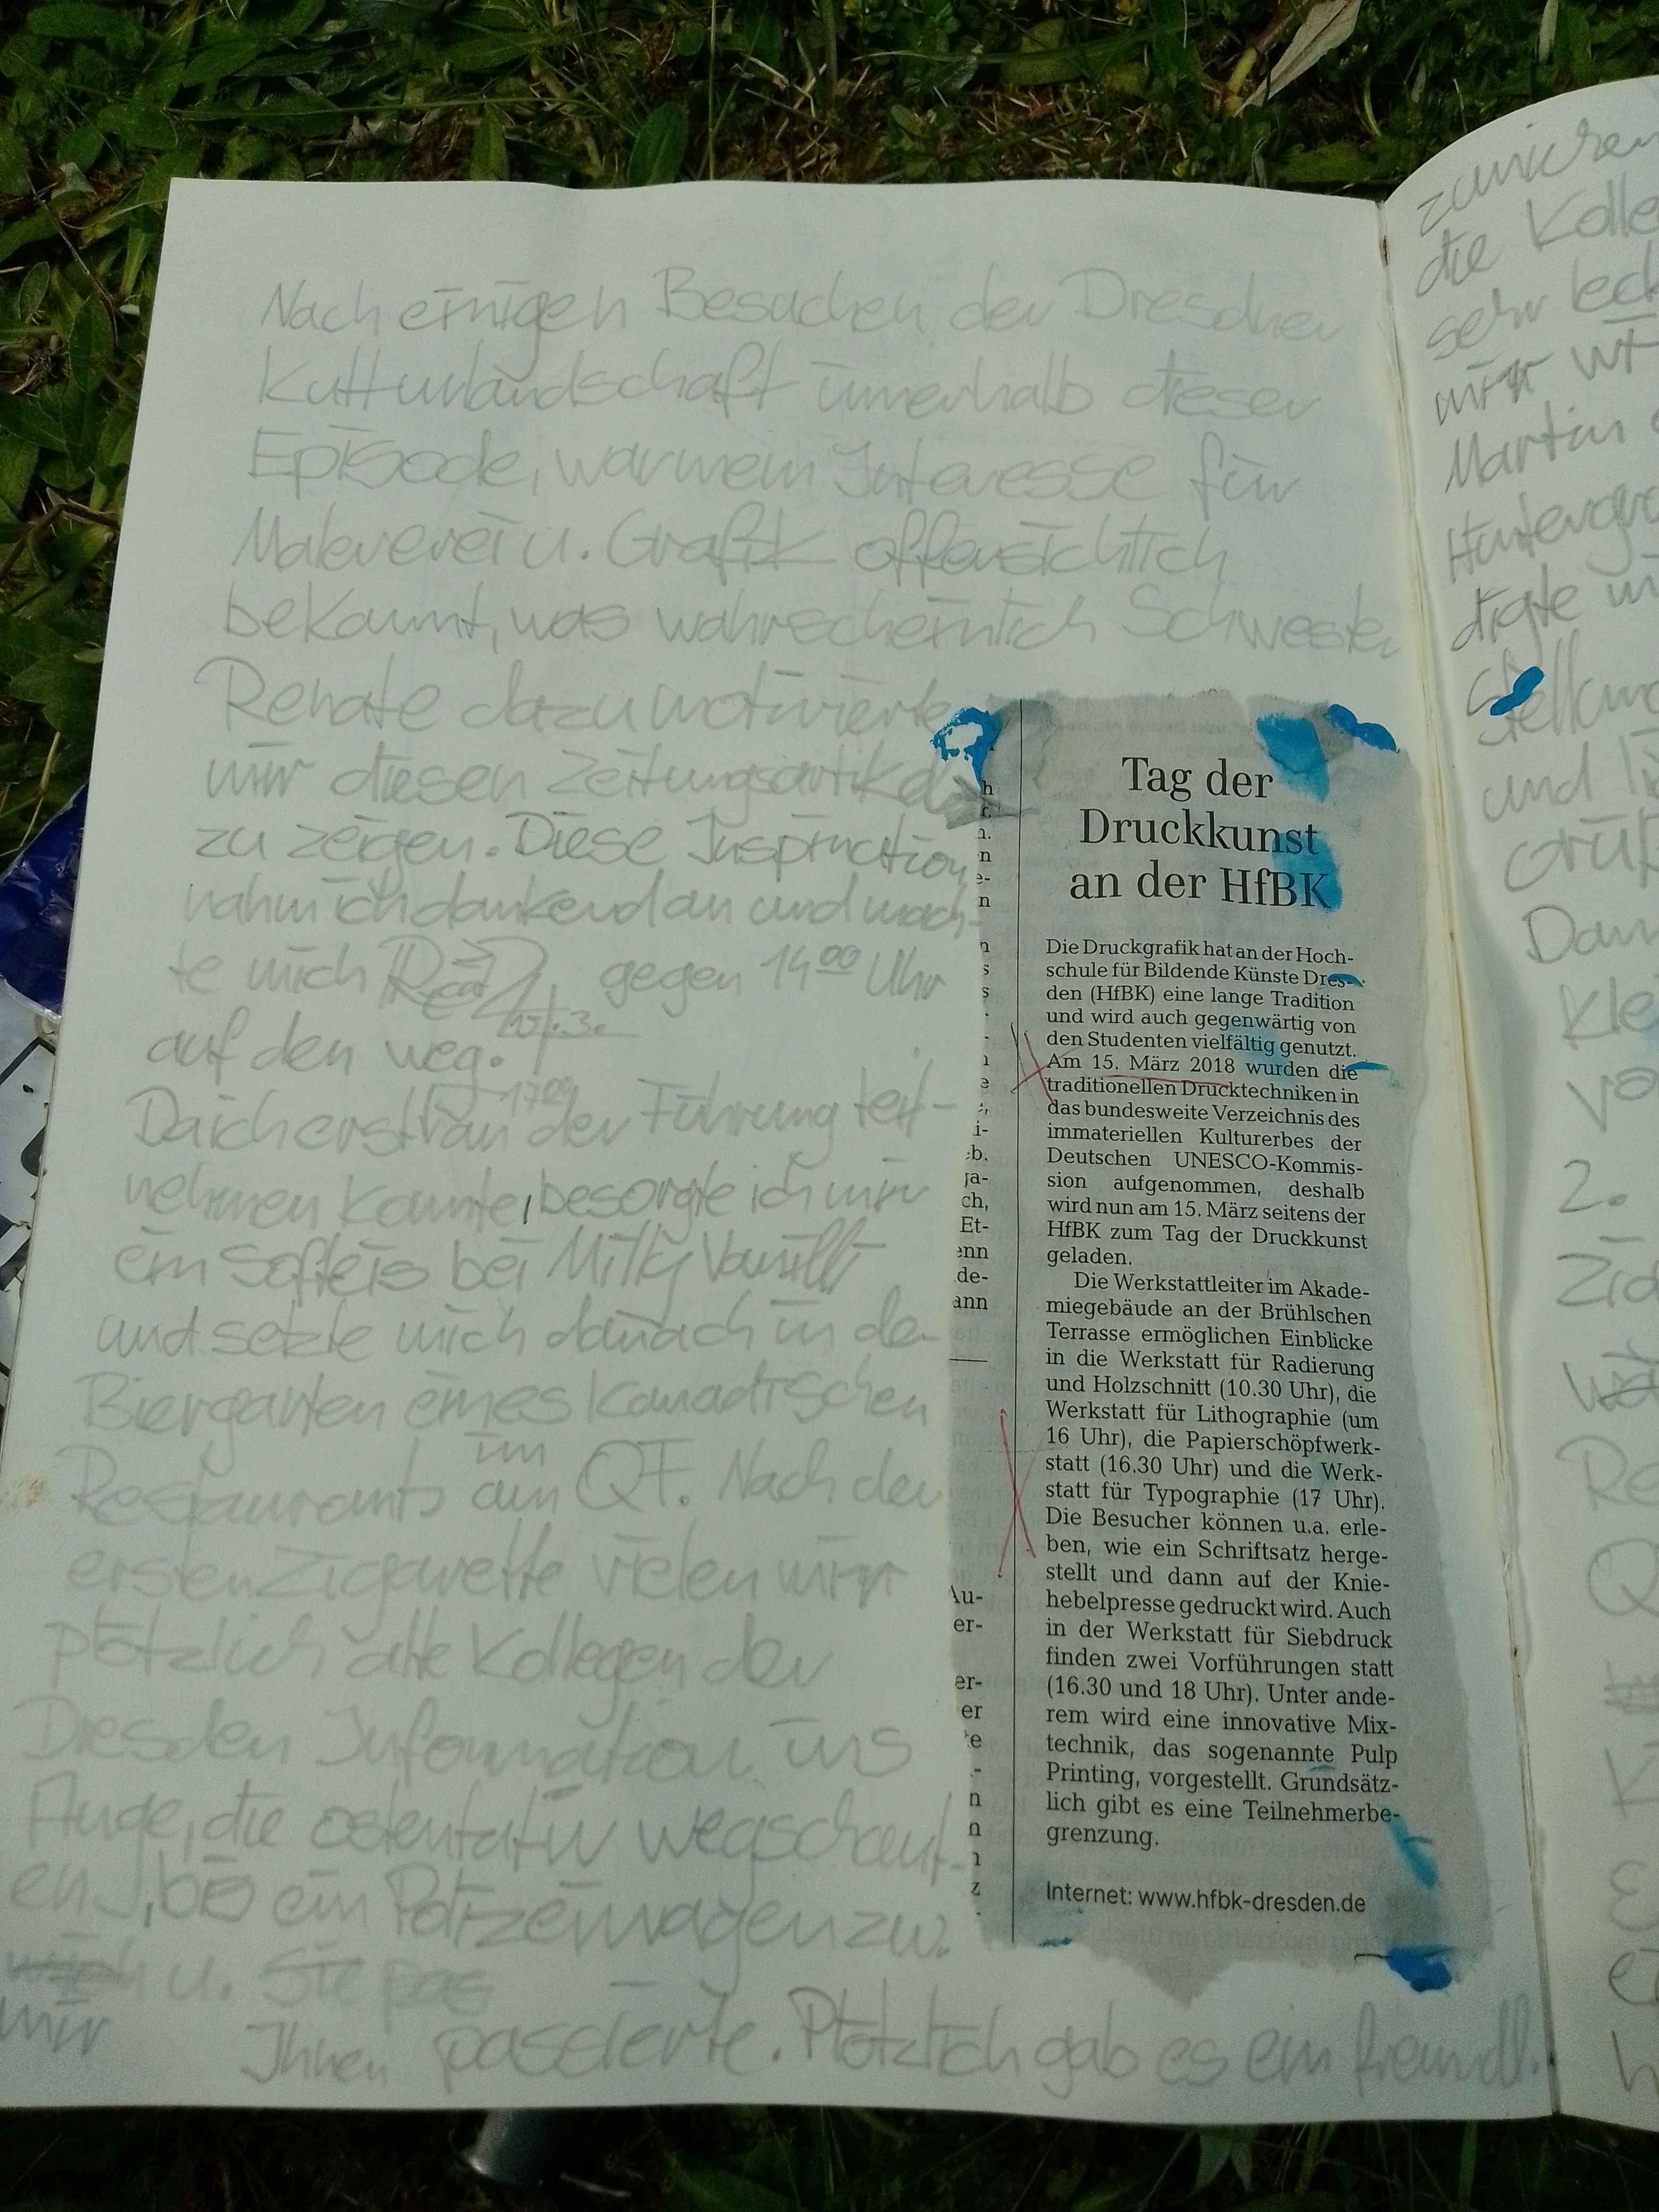 Nach einigen Besuchen der Dresdner
Kulturlandschaft innerhalb dieser
Episode, war mein Interesse für
Malererei u. Grafik offensichtlich
bekannt, was wahrscheinlich Schwester
Renate dazu motivierte
mir diesen Zeitungsartikel
zu zeigen. Diese Inspiration
nahm ich dankend an und mach-
te mich gegen 14 00 Uhr
15.3.
auf den weg.
17 00
Da ich erst an der Führung teil-
nehmen konnte, besorgte ich mir
ein Softeis bei Milly Vanilli
und setzte mich danach in de
Biergarten eines kanadischen
im
Restaurants am QF. Nach der
ersten Zigarette vielen mir
plötzlich alte Kollegen der
Dresden Information ins
Auge, die ostentativ wegschaut-
en, bis ein Polizeiwagen zw.
mich u. Sie pas
mir
Ihnen passierte. Plötzlich gab es ein freundl.
Tag der
Druckkunst
an der HfBK
Die Druckgrafik hat an der Hoch-
schule für Bildende Künste Dres-
den (HfBK) eine lange Tradition
und wird auch gegenwärtig von
den Studenten vielfältig genutzt.
Am 15. März 2018 wurden die
traditionellen Drucktechniken in
das bundesweite Verzeichnis des
immateriellen Kulturerbes der
Deutschen UNESCO-Kommis-
sion aufgenommen, deshalb
wird nun am 15. März seitens der
HfBK zum Tag der Druckkunst
geladen.
Die Werkstattleiter im Akade-
miegebäude an der Brühlschen
Terrasse ermöglichen Einblicke
in die Werkstatt für Radierung
und Holzschnitt (10.30 Uhr), die
Werkstatt für Lithographie (um
16 Uhr), die Papierschöpfwerk-
statt (16.30 Uhr) und die Werk-
statt für Typographie (17 Uhr).
Die Besucher können u.a. erle-
ben, wie ein Schriftsatz herge-
stellt und dann auf der Knie-
hebelpresse gedruckt wird. Auch
in der Werkstatt für Siebdruck
finden zwei Vorführungen statt
(16.30 und 18 Uhr). Unter ande-
rem wird eine innovative Mix-
technik, das sogenannte Pulp
Printing, vorgestellt. Grundsätz-
lich gibt es eine Teilnehmerbe-
grenzung.
Internet: www.hfbk-dresden.de
die Kolle
sehr leck
mir wi
Martin
Hintergr
digte
Stellun
und li
Grüß
Dan
Kle
2.